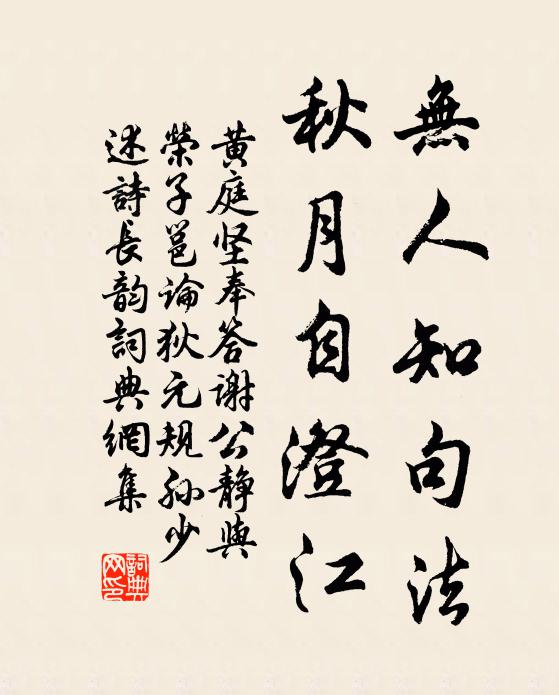 無人知句法
秋月自澄江
黄庭坚奉答谢公静與
榮子邕論狄元規孫少
述詩長韵詞典網集
詞典
网印